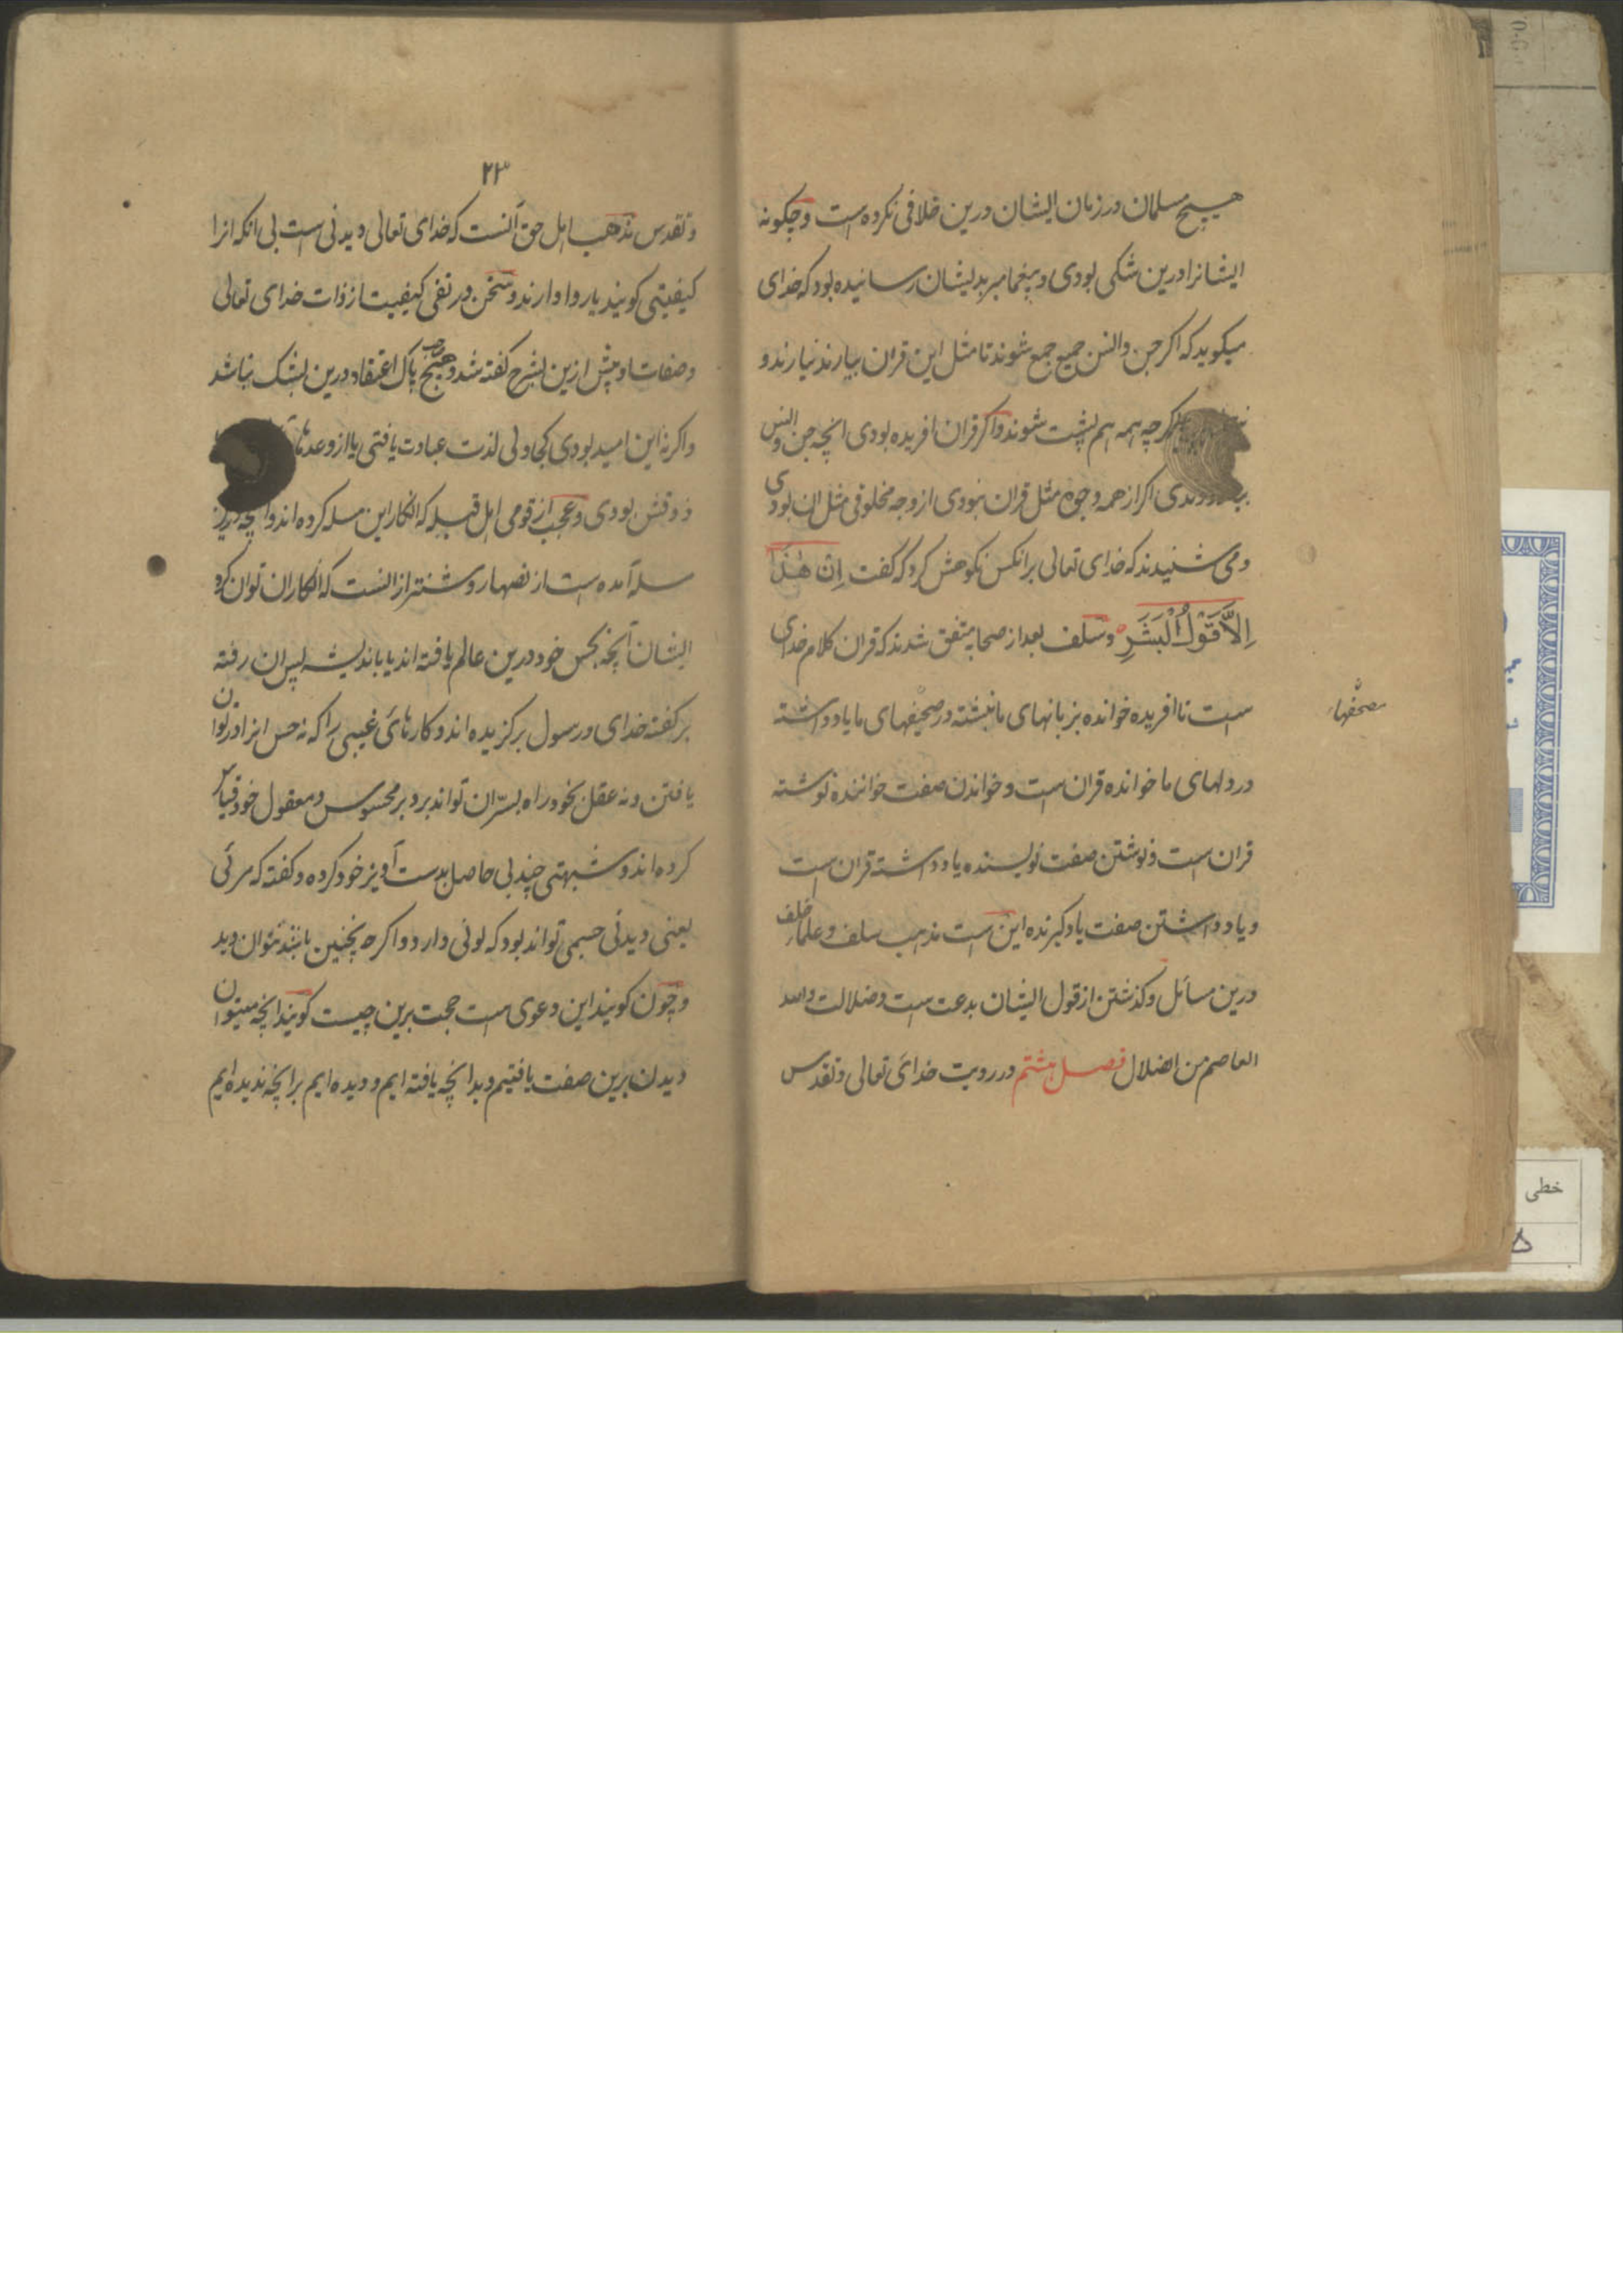 هیچ مسلمان در زمان ایشان درین خلافی نکرده است و چکونه
ایشانرا درین شکی بودی و پیغامبر بدیشان رسانیده بود که خدای
میکوید که اکر جن و انس جمیع جمع شوند تا مثل این قران بیارند نیارند و
اکرچه همه هم پشت شوند و اکر قران افریده بودی انچه جن و انس
اکر از همه وجوه مثل قران نبودی از وجه مخلوقی مثل ان بودی
و می شنیدند که خدای تعالی بر انکس نکوهش کرد که کفت اِنْ هٰذَا
اِلَّا قَوْلُ الْبَشَرِ و سلف بعد از صحابه متفق شدند که قران کلام خدای
است ناافریده خوانده بزبانهای ما نبشته در صحیفهای ما یاد داشته
مصحفهاء
در دلهای ما خوانده قران است و خواندن صفت خواننده نوشته
قران است و نوشتن صفت نویسنده یاد داشته قران است
و یاد داشتن صفت یاد کیرنده این است مذهب سلف و علماء خلف
درین مسائل و کذشتن از قول ایشان بدعت است و ضلالت والله
العاصم من الضلال فصل هشتم در رویت خدای تعالی و تقدس
۲۳
و تقدس مذهب اهل حق آنست که خدای تعالی دیدنی است بی انکه انرا
کیفیتی کویند یا روا دارند و سخن در نفی کیفیت از ذات خدای تعالی
و صفات او پیش ازین بشرح کفته شد و هیچ پاک اعتقاد درین بشک نباشد
و اکر نه این امید بودی کجا ولی لذت عبادت یافتی یا از وعدها
ذوقش بودی و عجب از قومی اهل قبله که انکار این مسله کرده اند و انچه درین
مسله آمده است از نصها روشنتر از انست که انکار ان توان کرد
ایشان آنچه بحس خود درین عالم یافته اند یا باندیشه بسر ان رفته
بر کفته خدای و رسول برکزیده اند و کارهای غیبی را که نه حس انرا در توان
یافتن و نه عقل بخود راه بسرّ ان تواند برد بر محسوس و معقول خود قیاس
کرده اند و شبهتی چند بی حاصل بدست آویز خود کرده و کفته که مرئی
یعنی دیدنی جسمی تواند بود که لونی دارد و اکر نه چنین باشد نتوان دید
و چون کویند این دعوی است حجت برین چیست کویند انچه میتوان
دیدن برین صفت یافتیم و بدانچه یافته ایم و دیده ایم برانچه ندیده ایم
خطی